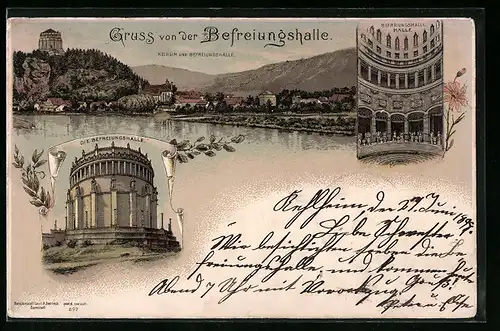 Gruss von der Befreiungshalle.
KELHEIM UND BEFREIUNGSHALLE.
BEFREIUNGSHALLE
HALLE
DIE BEFREIUNGSHALLE
Kehlheim, den 29 Juni 1897.
Liebe Schwester
Wir besichtigten soeben die Be-
freiungshalle, und kommen heute
Abend 7 Uhr mit
Gruß!
897